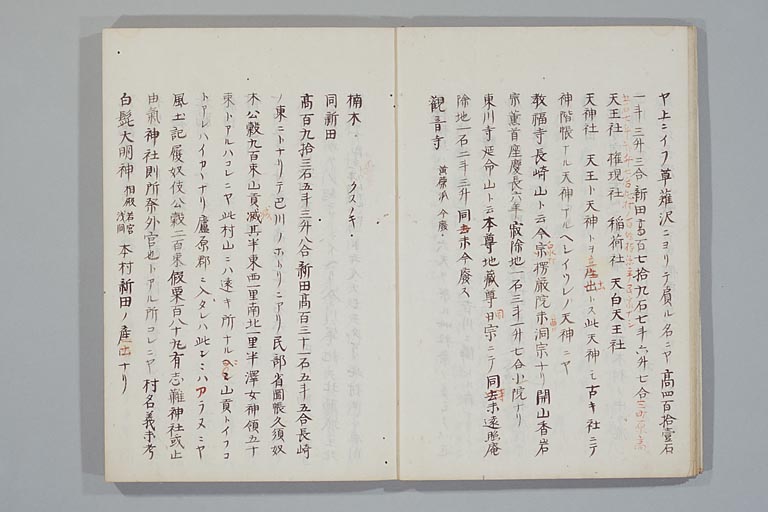 ヤ上ニイフ草薙沢ニヨリテ負ル名ニヤ 高四百拾壹石
一斗三升三合 新田高百七拾九石七斗六升七合
天王社 権現社 稲荷社 天白天王社
天神社 天王ト天神トヲ産出トス此天神ハ古キ社ニテ
神階帳ナル天神ナルヘシイツレノ天神ニヤ
教福寺長崎山ト云今宗楞厳院末洞宗ナリ 開山香岩
宗薫首座慶長六年寂除地一石三斗一升七合小院ナリ
東川寺延命山ト云本尊地蔵尊旧宗ニテ同末遠照庵
除地一石二斗三升 同末今廃ス
観音寺 黄檗派 今廃
楠木 クスノキ
同新田
高百九拾三石五斗三升八合 新田高百三十一石五斗五合長崎
ノ東ニトナリテ巴川ノホトリニアリ民部省圖帳久須奴
木公穀九百束山貢減其半東西一里南北一里半澤女神領五十
束トアルハコレニヤ此村山ニハ遠キ所ナル 山貢トイフコ
トアレハイカヽナリ廬原郡ニ入タレハ此レミハアラヌニヤ
風土記屐奴伎公穀二百束假粟百八十九有志難神社或止
由氣神社則所祭外宮也トアル所コレニヤ 村名義未考
白髭大明神 相殿 若宮 浅間 本村新田ノ産出ナリ